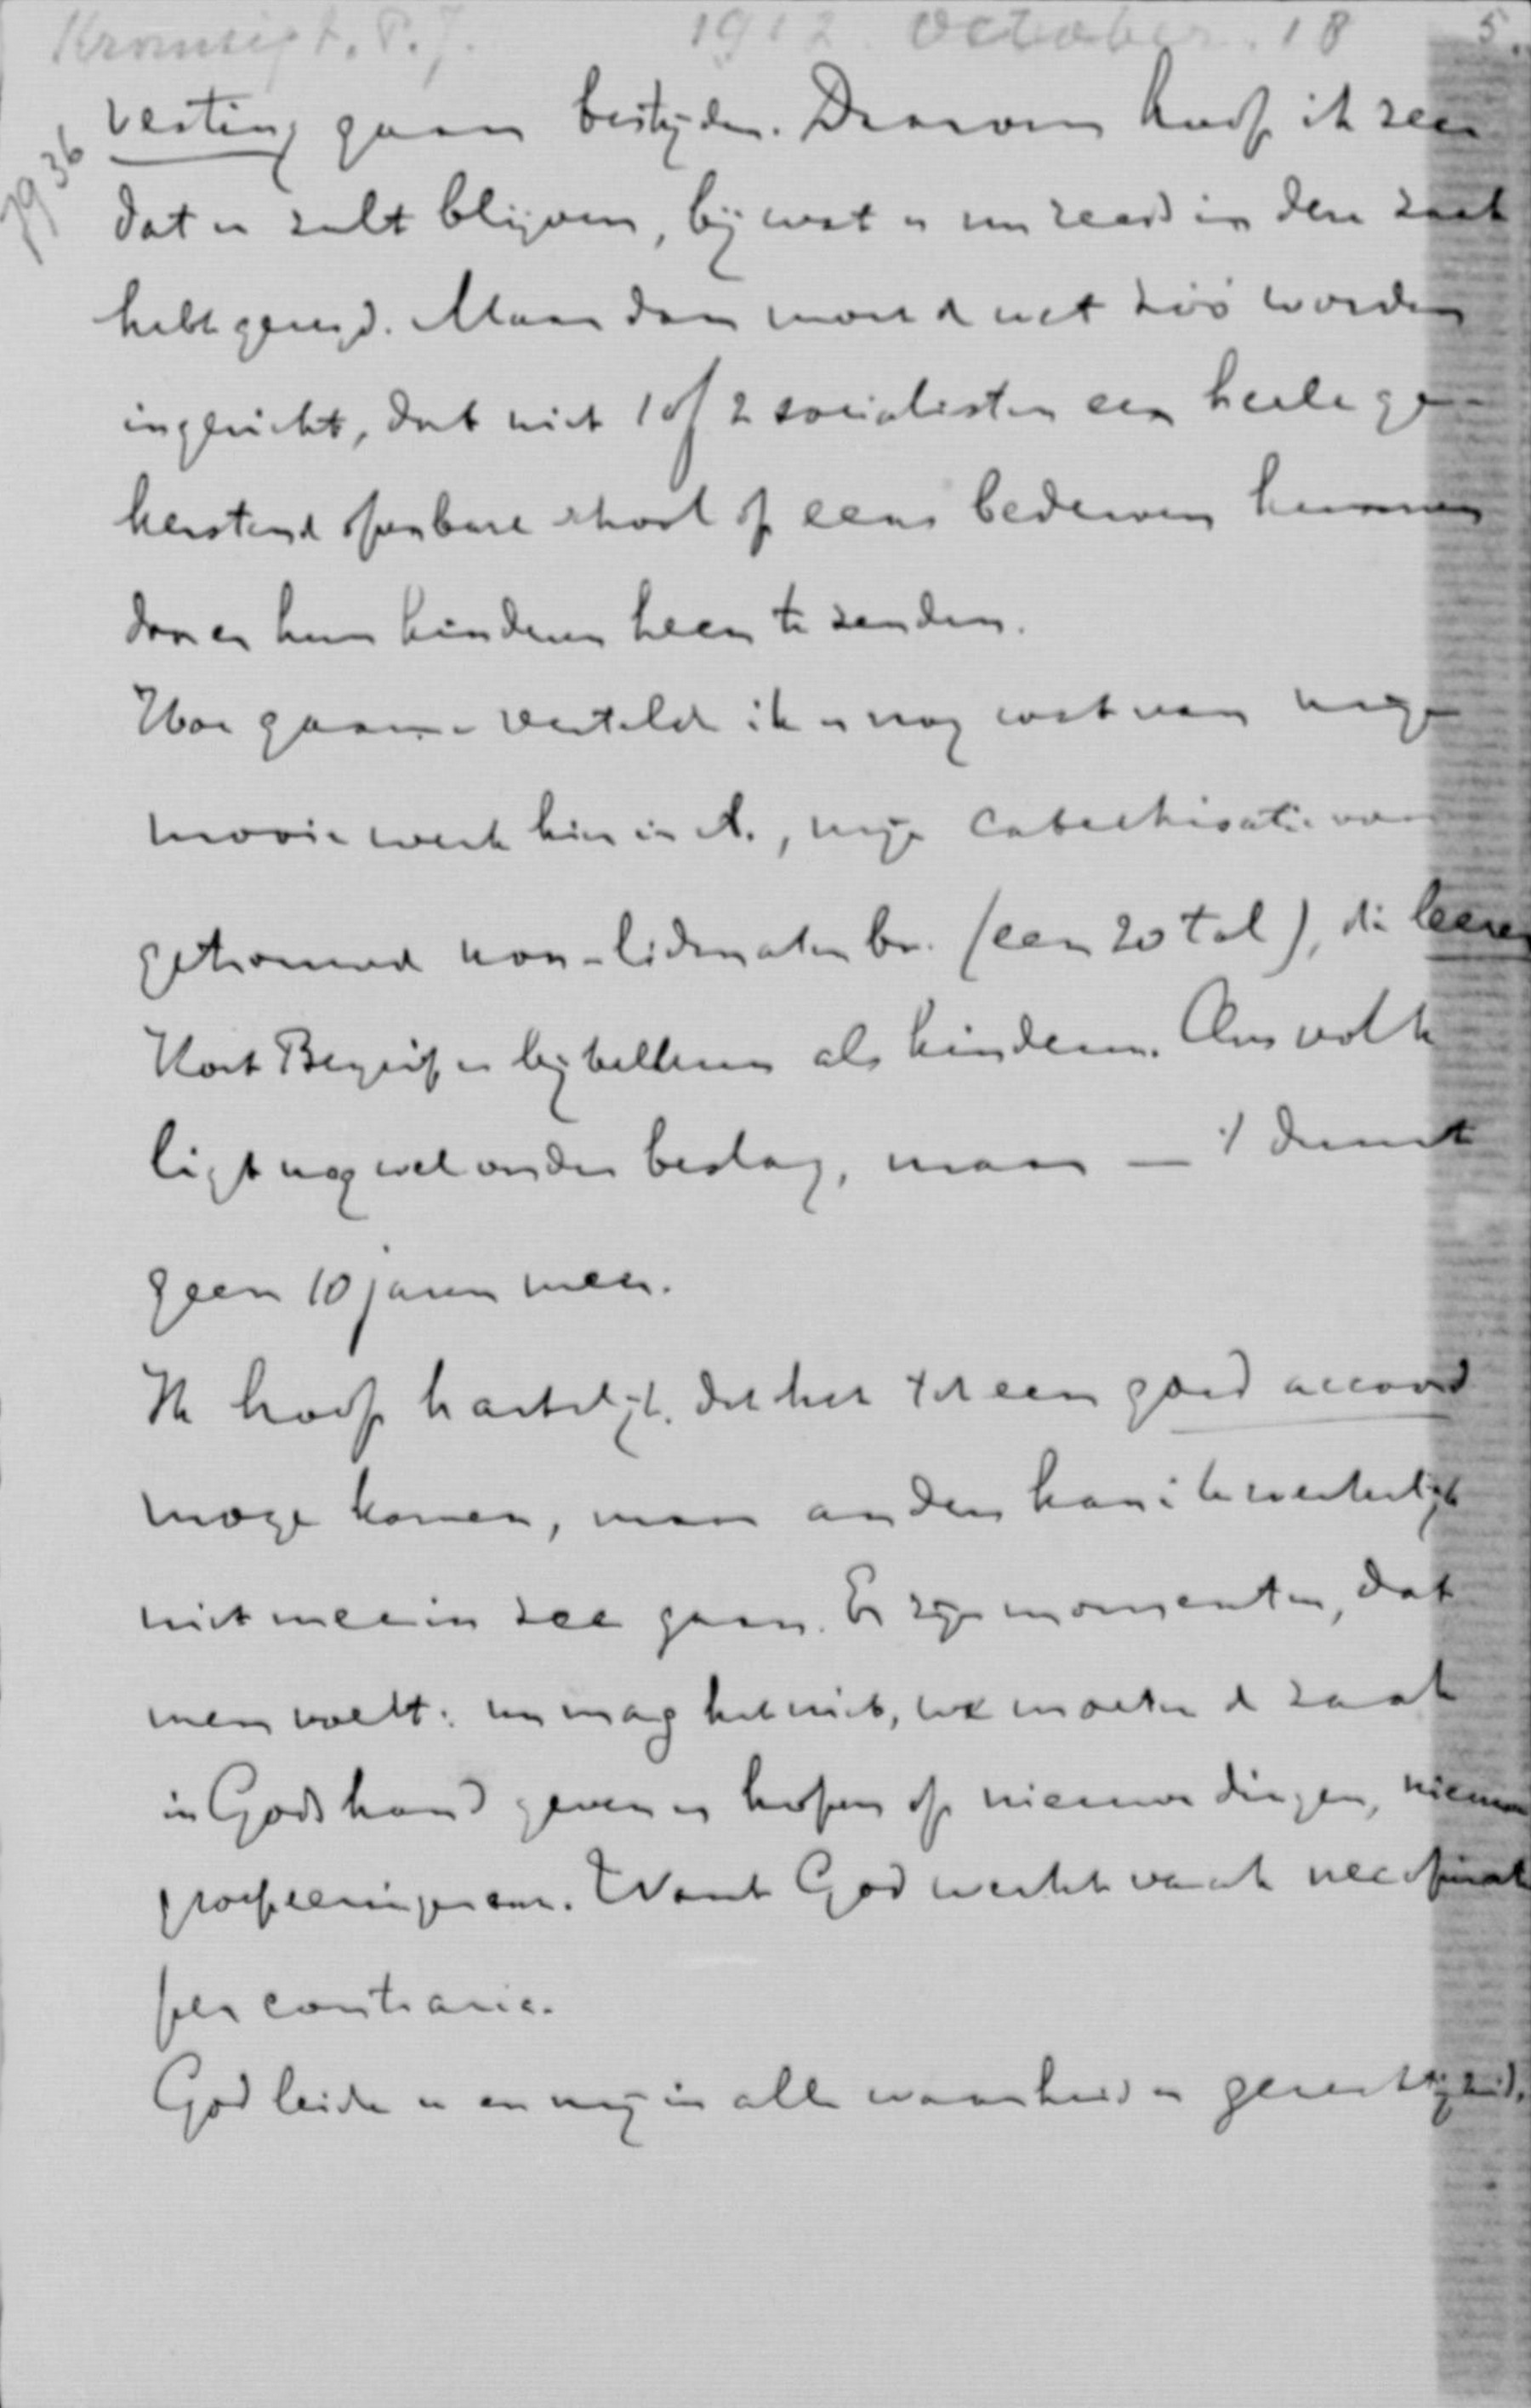 Kromsigt. P. J. 1912 October. 18 5.
7936
vesting gaan bestijden. Daarom hoop ik zeer
dat u zult blijven, bij wat u nu reeds in deze zaak
hebt gezegd. Maar dan moet de wet zóó worden
ingericht, dat niet 1 of 2 socialisten een heele ge-
kerstende openbare school op eens bederven kunnen
door er hun kinderen heen te zenden.
Hoe gaarne vertelde ik u nog wat van mijn
mooie werk hier in A., mijn catechisatie van
getrouwde non-lidmaten br. (een 20 tal), die leeren
Kort Begrip en bijbellezen als kinderen. Ons volk
ligt nog wel onder beslag, maar — 't duurt
geen 10 jaren meer.
Ik hoop hartelijk, dat het tot een goed accoord
moge komen, maar anders kan ik werkelijk
niet mee in zee gaan. Er zijn momenten, dat
men voelt: nu mag het niet, we moeten de zaak
in Gods hand geven en hopen op nieuwe dingen, nieuwe
groepeeringen enz. Want God werkt vaak nec opinate
per contraria.
God leide u en mij in alle waarheid en gerechtigheid.